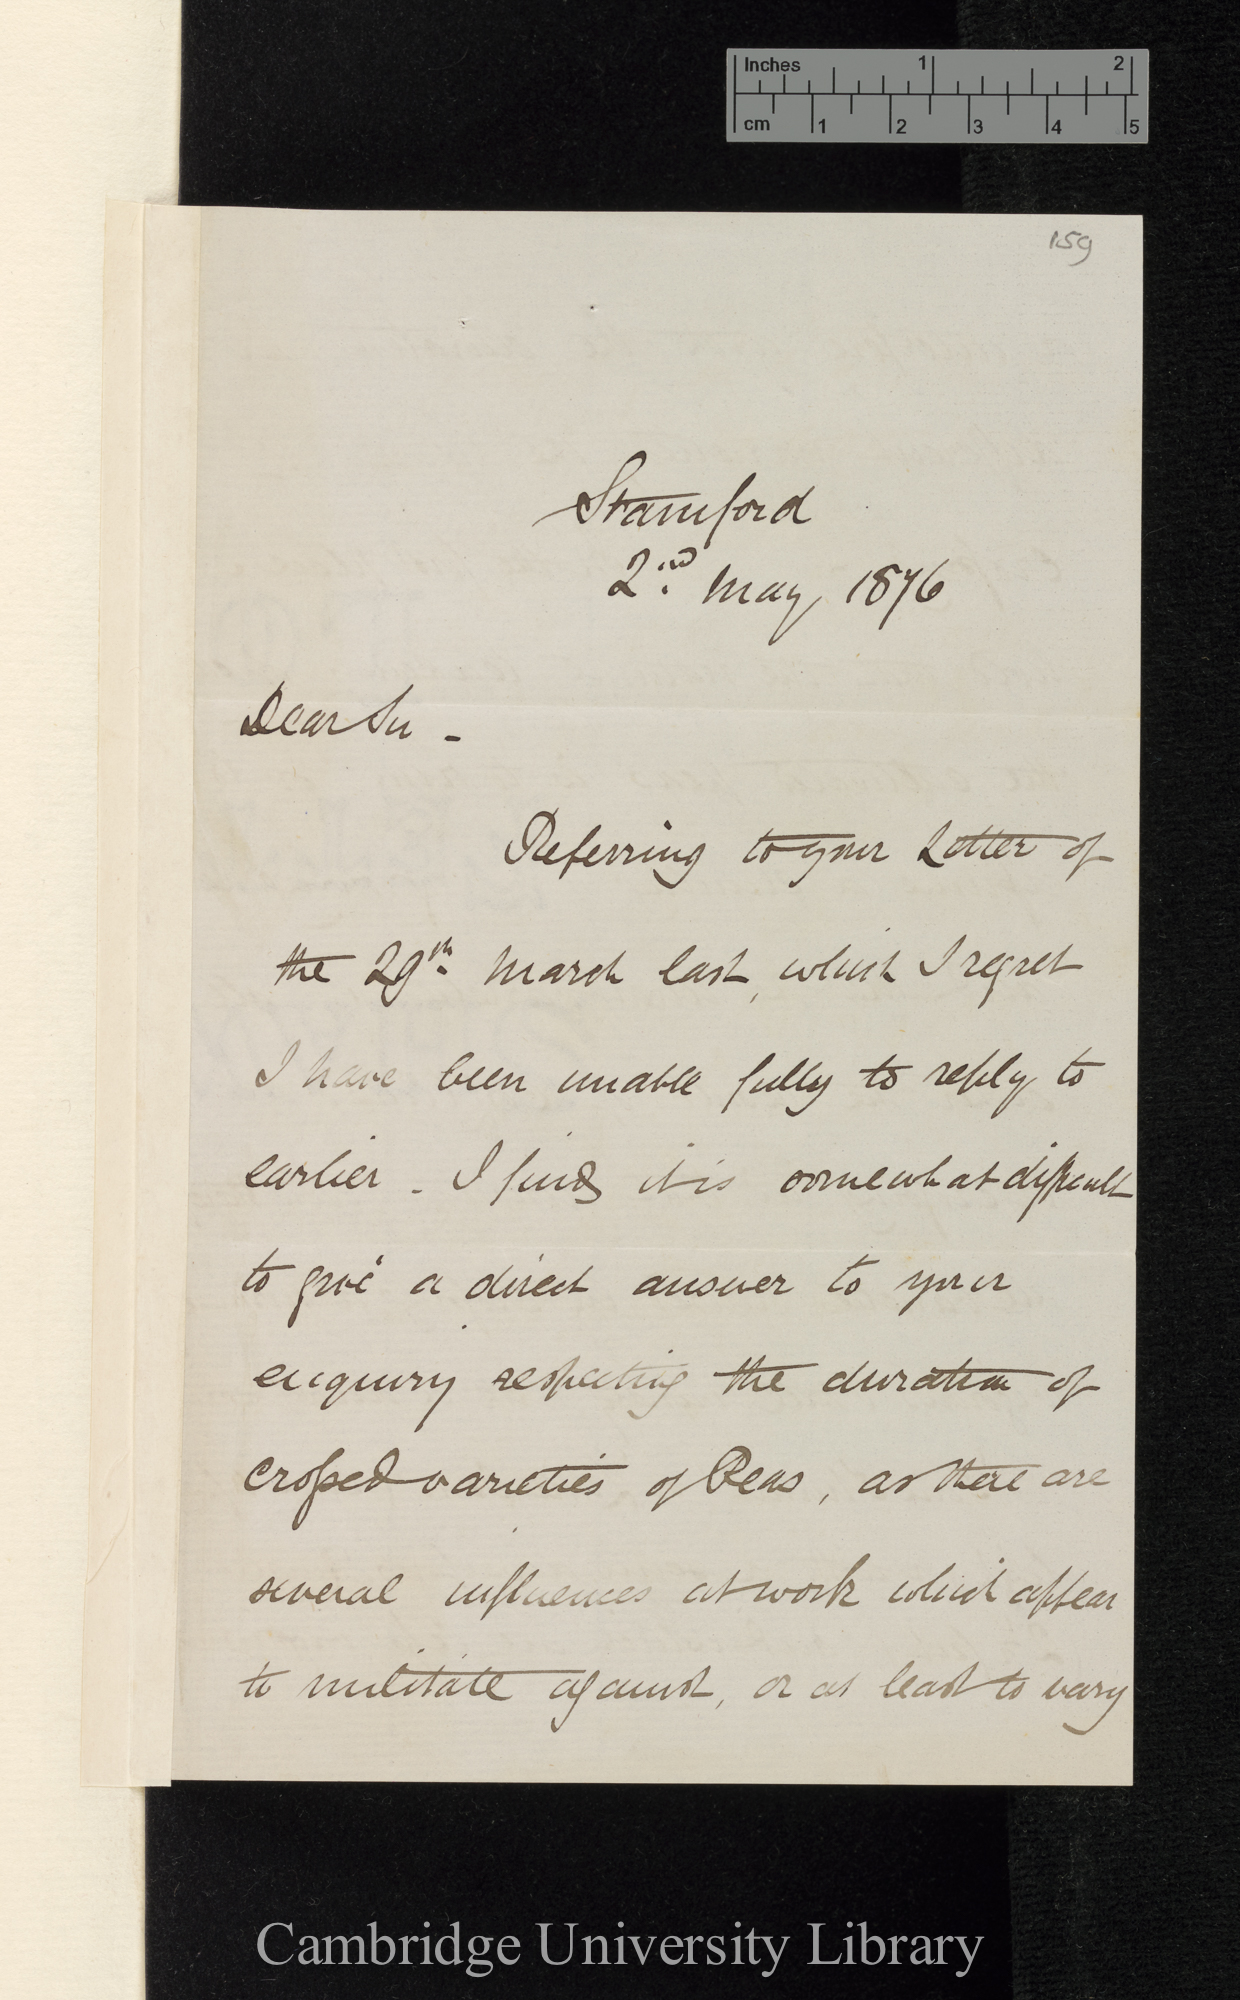 Inches 1 2
cm 1 2 3 4 5
159
Stamford
2.nd May, 1876
Dear Sir -
Referring to your Letter of
the 29th. March last, which I regret
I have been unable fully to reply to
earlier - I find it is somewhat difficult
to give a direct answer to your
enquiry respecting the duration of
croſsed varieties of Peas, as there are
several influences at work which appear
to militate against, or at least to vary
Cambridge University Library